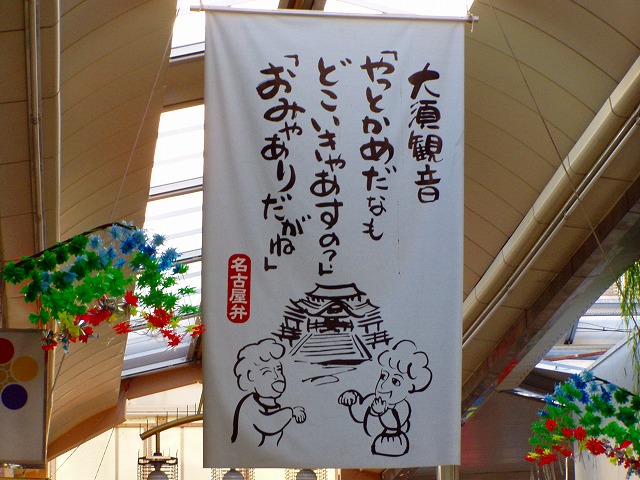 大須観音
「やっとかめだなも
どこいきゃあすの?」
「おみゃありだがね」
名古屋弁